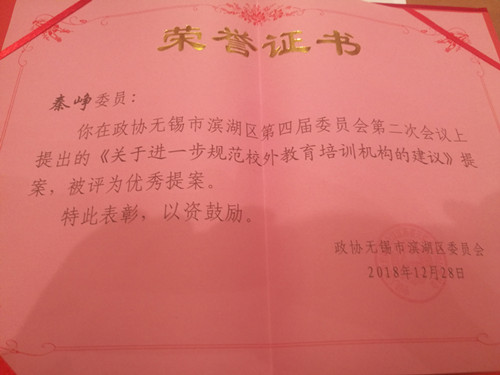 荣誉证书
秦峥委员：
你在政协无锡市滨湖区第四届委员会第二次会议上
提出的《关于进一步规范校外教育培训机构的建议》提
案，被评为优秀提案。
特此表彰，以资鼓励。
政协无锡市滨湖区委员会
2018年12月28日